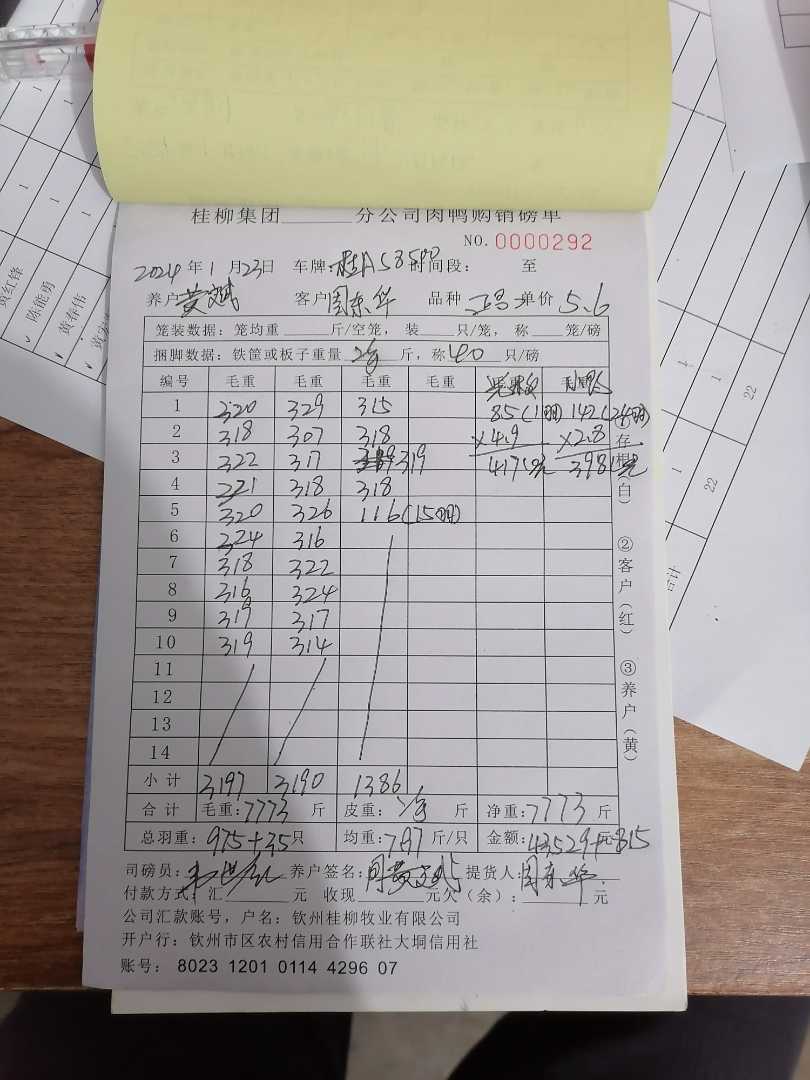 桂柳集团______分公司肉鸭购销磅单
NO. 0000292
2024 年 1 月 23 日 车牌: 桂A58500 时间段: 至
养户 黄斌 客户 周东华 品种 单价 5.6
笼装数据: 笼均重 ____斤/空笼, 装 ___只/笼, 称 ___笼/磅
捆脚数据: 铁筐或板子重量 净 斤, 称 40 只/磅
编号 毛重 毛重 毛重 毛重
1 320 329 315 85(1羽) 142(24羽)
2 318 307 318 ×4.9 ×2.8
3 322 317 319 417元 398元
4 221 318 318
5 320 326 116(15羽)
6 324 316
7 318 322
8 316 324
9 319 317
10 319 314
11
12
13
14
小计 3197 3190 1386
合计 毛重: 7773 斤 皮重: 净 斤 净重: 7773 斤
总羽重: 975+35 只 均重: 7.97 斤/只 金额: 43529+815 元
司磅员: 养户签名: 提货人: 周东华
付款方式: 汇______元 收现______元欠(余): ______元
公司汇款账号, 户名: 钦州桂柳牧业有限公司
开户行: 钦州市区农村信用合作联社大垌信用社
账号: 8023 1201 0114 4296 07
①存根(白)
②客户(红)
③养户(黄)
黄红锋 1
陈能勇 1
黄春伟 1
22
22
合计